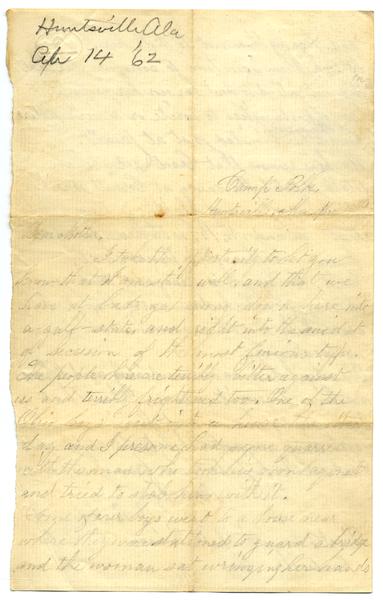 Huntsville Ala
Apr 14 '62
Camp Polk
Huntsville Ala Apr
Dear brother,
I take this opportunity to let you
know that I am still well and that we
have at last got away down here into
a and right into the midst
of secession of the most furious type.
The people here are terribly bitter against
us and terribly frightened too. One of the
Ohio boys went into a house the other
day and I presume had some
with the man who
and tried to shoot him with it.
Some of our boys went to a house near
where they were stationed to guard a bridge
and the woman sat wringing her hands